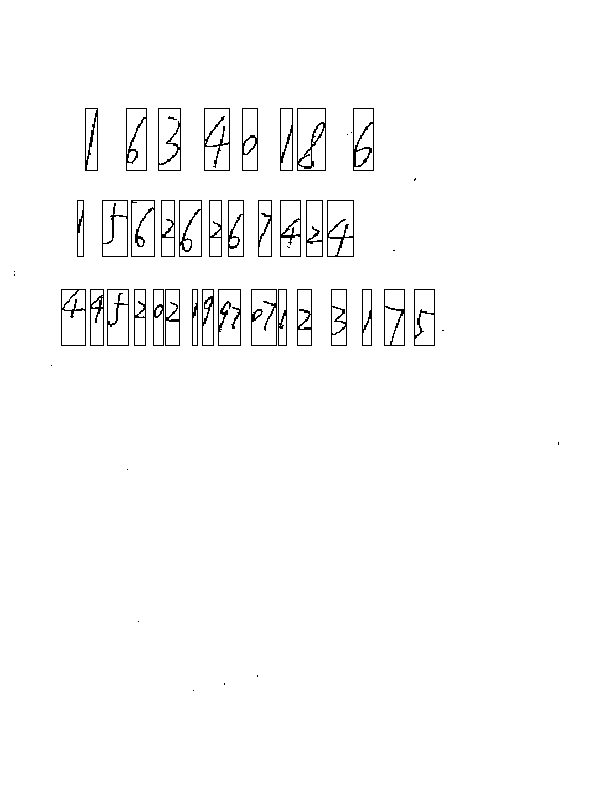 1 6 3 4 0 1 8 6
1 5 6 2 6 2 6 7 4 2 4
4 4 5 2 0 2 1 9 97 07 1 2 3 1 7 5